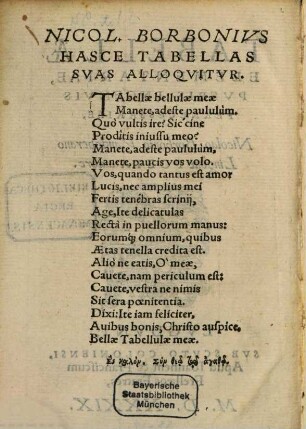 NICOL. BORBONIVS
HASCE TABELLAS
SVAS ALLOQVITVR.
TAbellæ bellulæ meæ
Manete, adeste paululùm.
Quò vultis ire? Sic'cine
Proditis iniussu meo?
Manete, adeste paululùm,
Manete, paucis vos volo.
Vos, quando tantus est amor
Lucis, nec amplius mei
Fertis tenebras scrinij,
Age, Ite delicatulas
Rectà in puellorum manus:
Eorumq; omnium, quibus
Ætas tenella credita est.
Aliò ne eatis, O' meæ,
Cauete, nam periculum est:
Cauete, vestra ne nimis
Sit sera pœnitentia.
Dixi: Ite iam feliciter,
Auibus bonis, Christo auspice,
Bellæ Tabellulæ meæ.
Bayerische
Staatsbibliothek
München